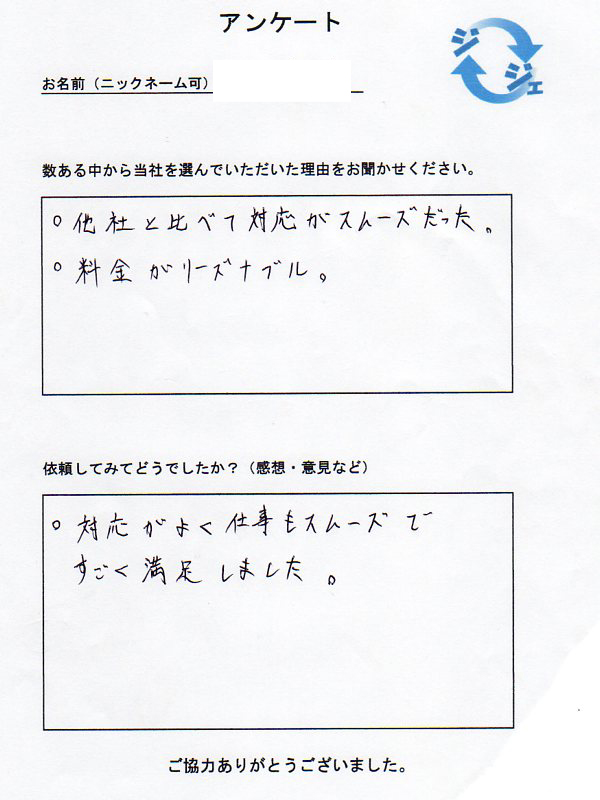 アンケート
ジジェ
お名前（ニックネーム可）
数ある中から当社を選んでいただいた理由をお聞かせください。
○ 他社と比べて対応がスムーズだった。
○ 料金がリーズナブル。
依頼してみてどうでしたか？（感想・意見など）
○ 対応がよく仕事もスムーズで
すごく満足しました。
ご協力ありがとうございました。